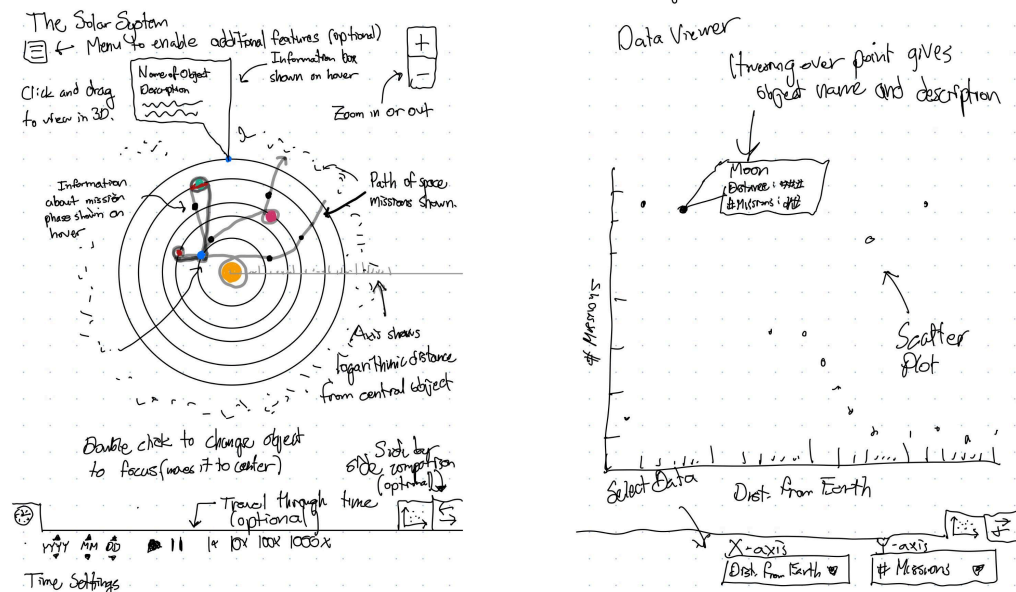 The Solar System
Menu to enable additional features (optional)
Information box
shown on hover
+
-
Zoom in or out
Name of Object
Description
Click and drag
to view in 3D.
Information
about mission
phase shown on
hover
Path of space
missions shown.
Axis shows
logarithmic distance
from central object
Double click to change object
to focus (moves it to center)
Side by
side comparison
(optional)
Travel through time
(optional)
YYYY MM DD
1x 10x 100x 1000x
Time Settings
Data Viewer
Hovering over point gives
object name and description
Moon
Distance: ###
# Missions: ##
# Missions
Scatter
Plot
Select Data
Dist. from Earth
X-axis
Dist. from Earth
Y-axis
# Missions